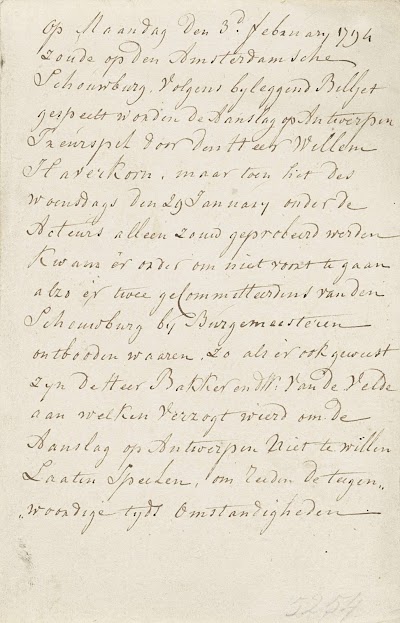 Op Maandag den 3.d february 1794
zoude op den Amsterdamsche
Schouwburg, Volgens byleggend Billjet
gespeelt worden de Aanslag op Antwerpen
Treurspel door den Heer Willem
Haverkorn, maar toen het des
woensdags den 29 January onder de
Acteurs alleen zoud geprobeerd werden
kwam er order om niet voort te gaan
alzo er twee geCommitteerdens van den
Schouwburg by Burgemeesteren
ontbooden waaren, zo als er ook geweest
zyn de Heer Bakker en Van de Velde
aan welken Verzogt wierd om de
Aanslag op Antwerpen Niet te willen
Laaten Speelen, om Reeden de teegen„
„woordige tyds Omstandigheden
5254